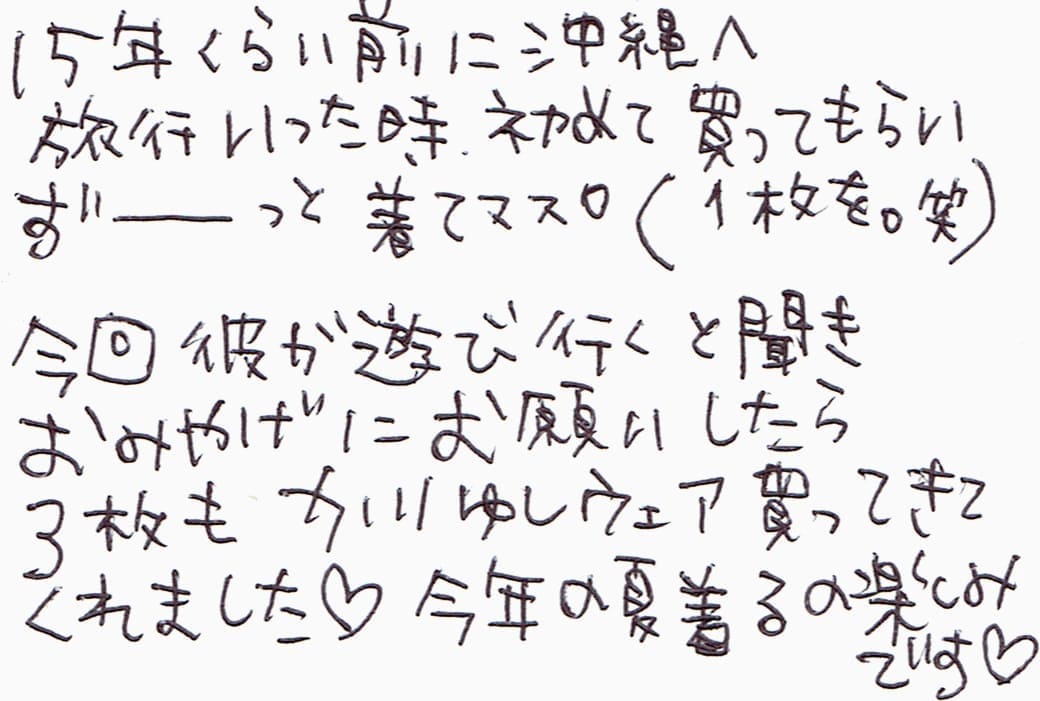 15年くらい前に沖縄へ
旅行いった時、初めて買ってもらい
ずーっと着てマス。(1枚を。笑)
今回彼が遊び行くと聞き
おみやげにお願いしたら
3枚もかりゆしウェア買ってきて
くれました♡今年の夏着るの楽しみ
です♡